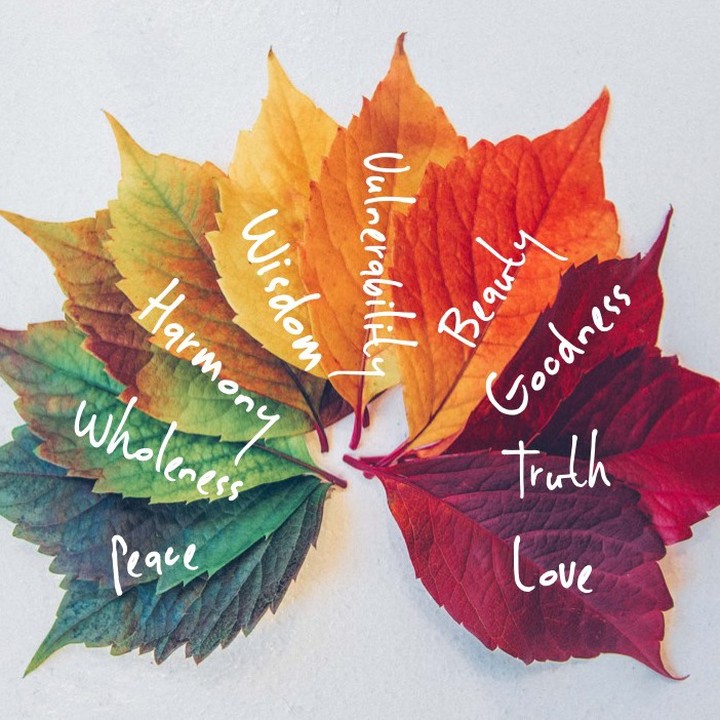 Peace
Wholeness
Harmony
Wisdom
Vulnerability
Beauty
Goodness
Truth
Love